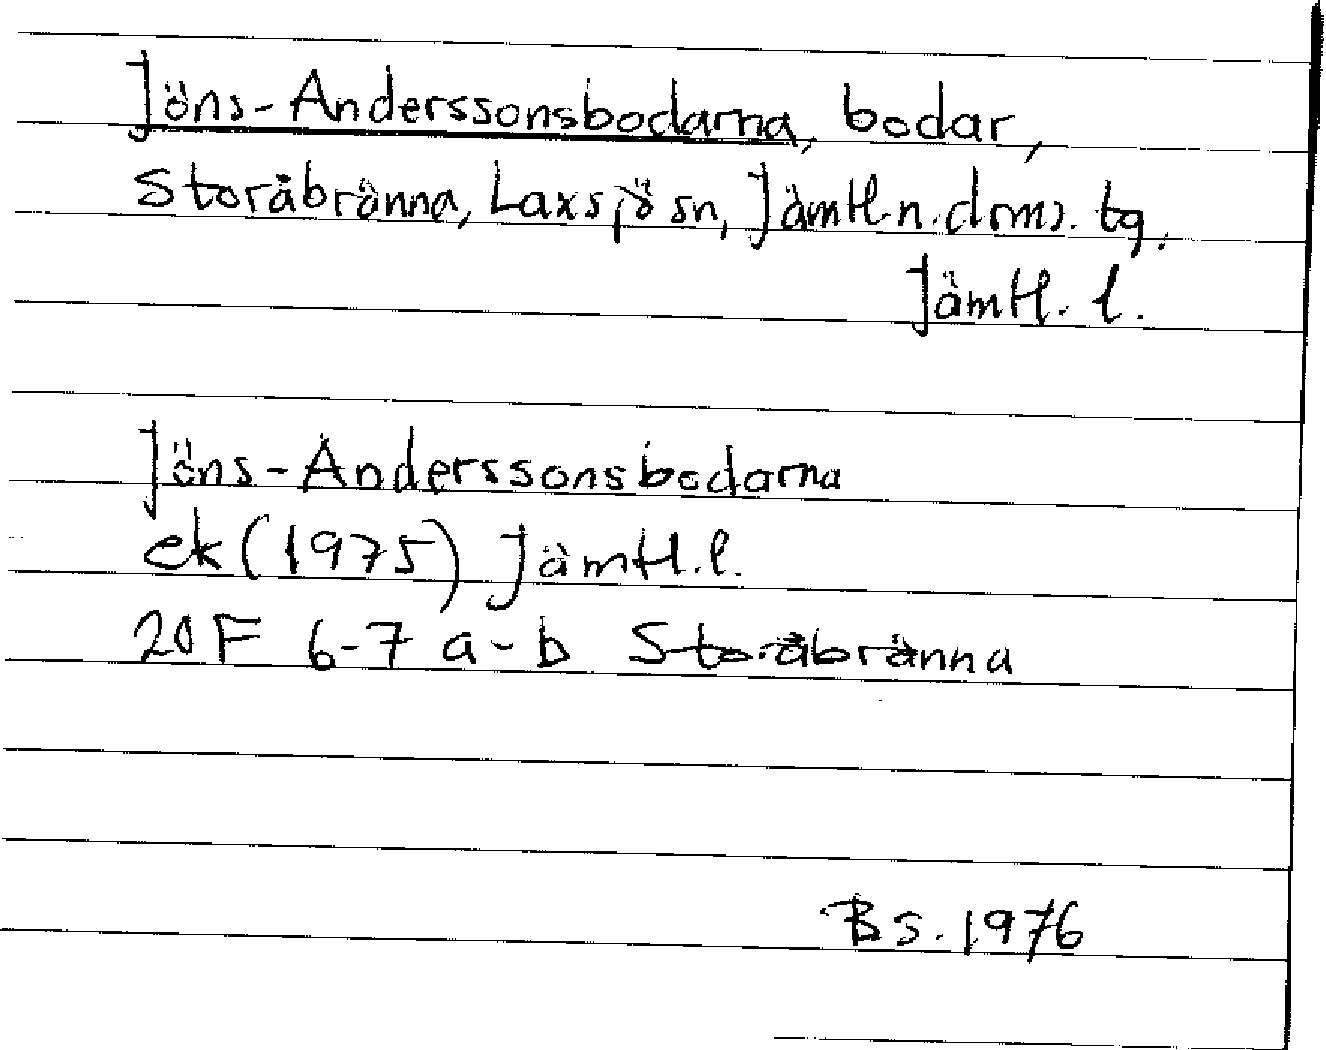 Jöns-Anderssonsbodarna, bodar,
Storåbränna, Laxsjö sn, Jämtl.n. doms. tg.
Jämtl. l.
Jöns-Anderssonsbodarna
ek (1975) Jämtl. l.
20F 6-7 a-b Storåbränna
BS. 1976